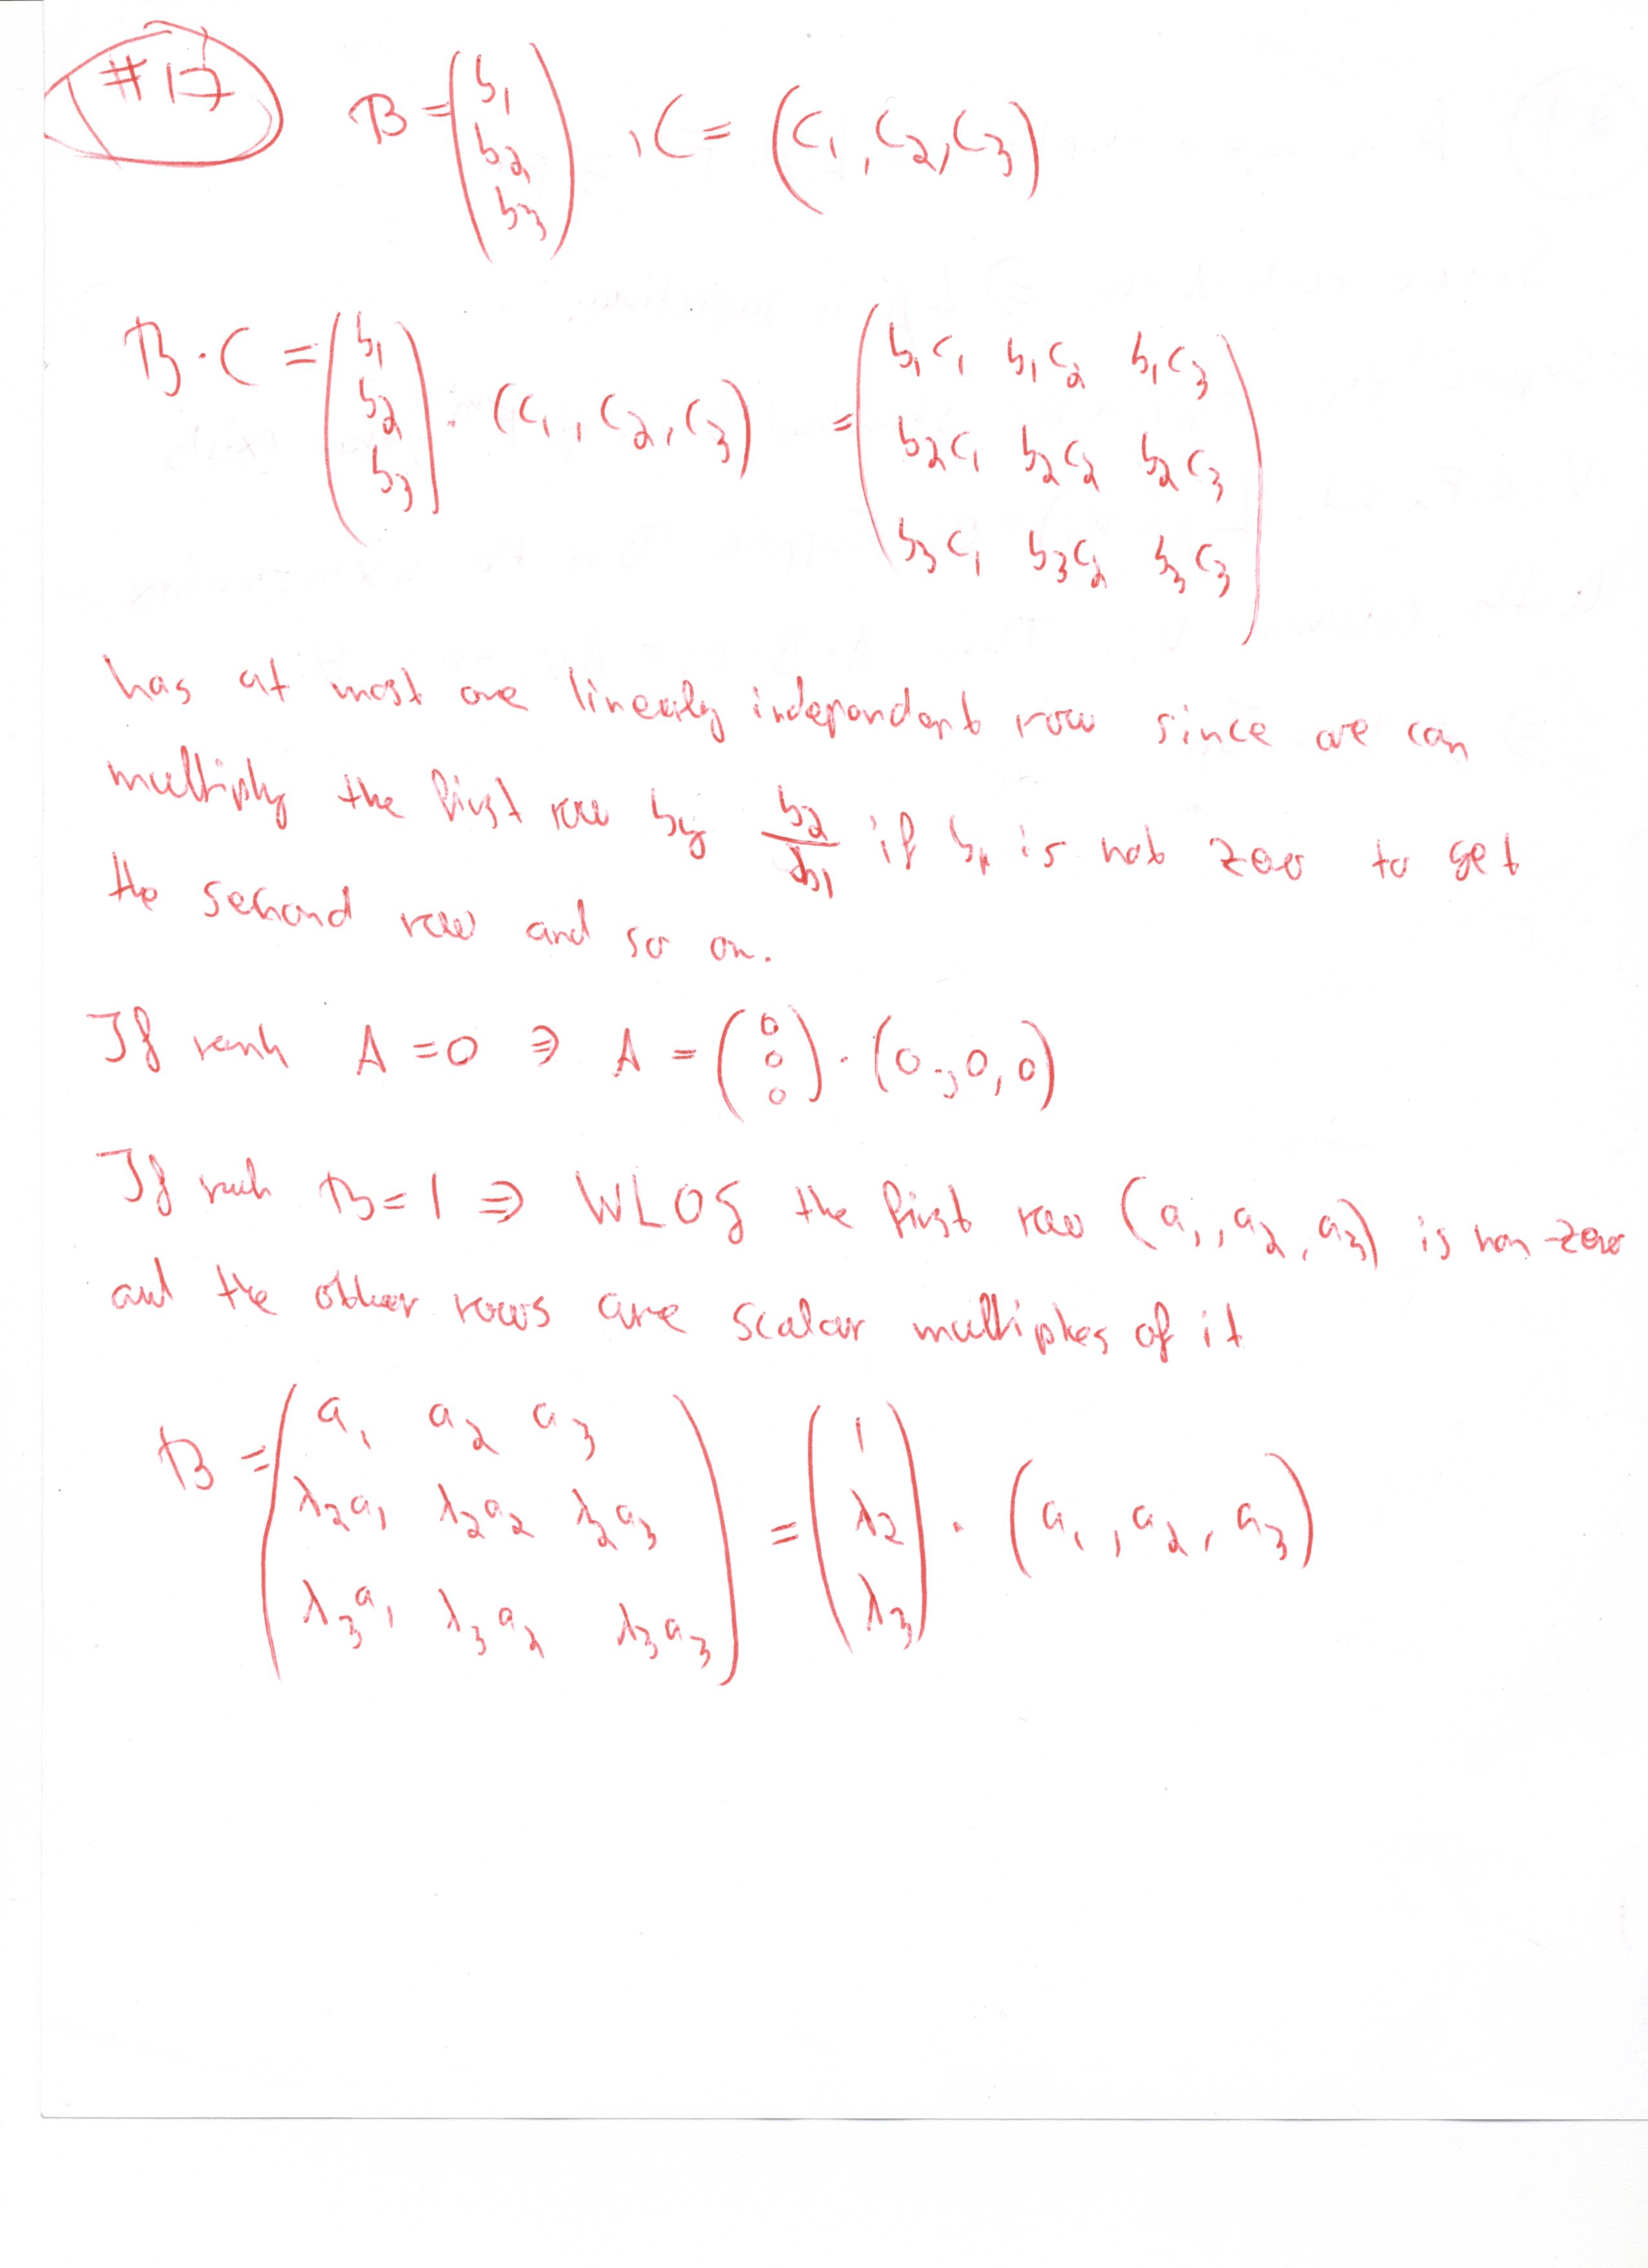 #17 B = (b₁ b₂ b₃) , C = (c₁, c₂, c₃)
B · C = (b₁ b₂ b₃) · (c₁, c₂, c₃) = (b₁c₁ b₁c₂ b₁c₃
b₂c₁ b₂c₂ b₂c₃
b₃c₁ b₃c₂ b₃c₃)
has at most one linearly independent row since we can
multiply the first row by b₂/b₁ if b₁ is not zero to get
the second row and so on.
If rank A = 0 ⇒ A = (0 0 0) · (0, 0, 0)
If rank B = 1 ⇒ WLOG the first row (a₁, a₂, a₃) is non-zero
and the other rows are scalar multiples of it
B = (a₁ a₂ a₃
λ₂a₁ λ₂a₂ λ₂a₃
λ₃a₁ λ₃a₂ λ₃a₃) = (1 λ₂ λ₃) · (a₁, a₂, a₃)